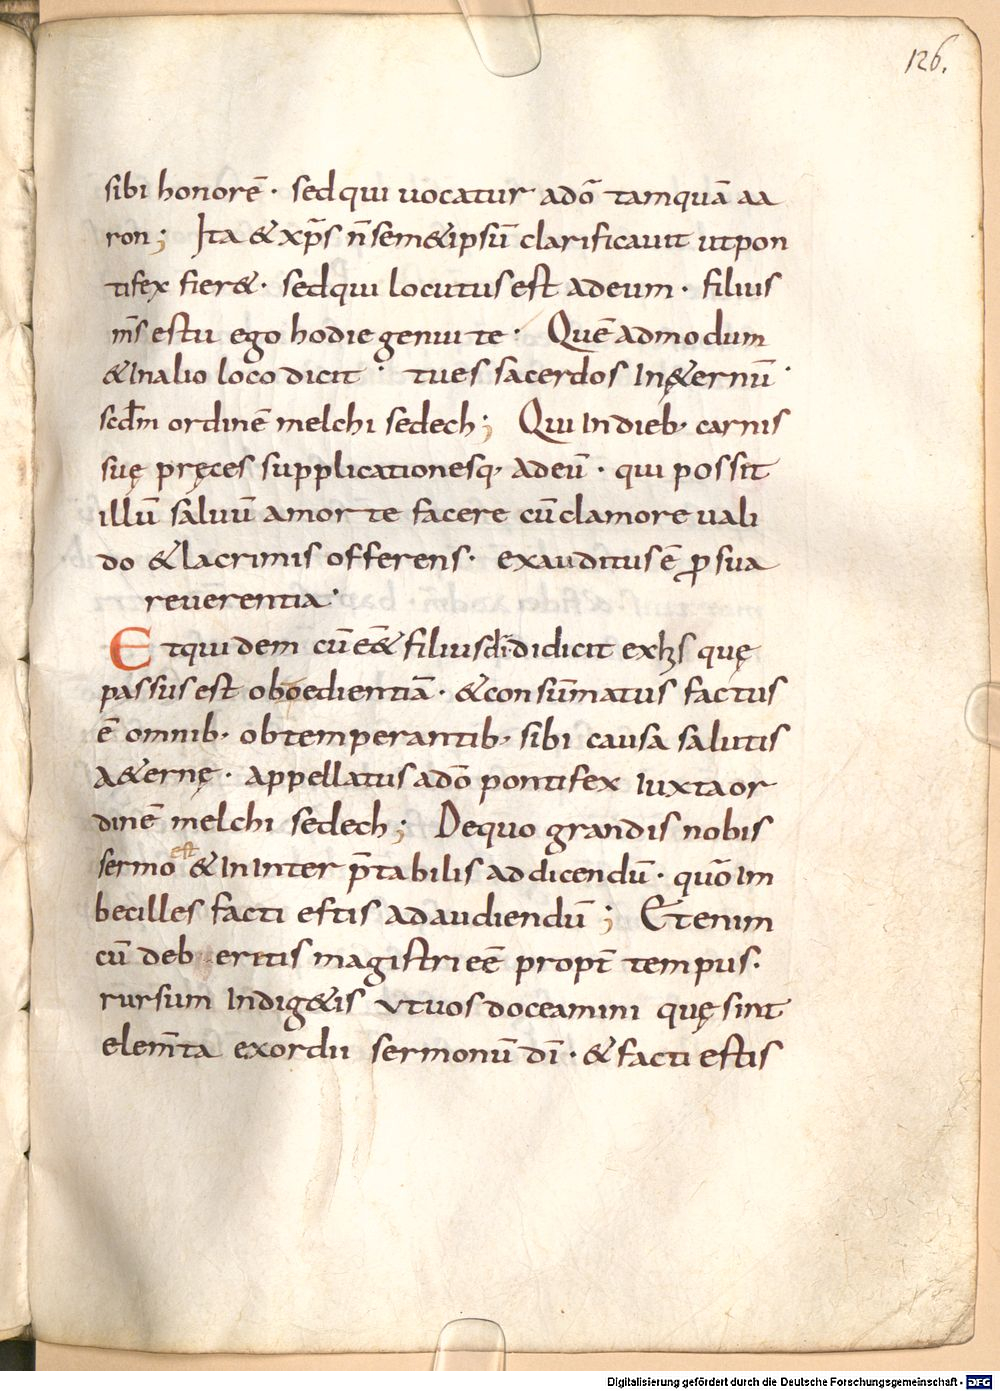 126.
sibi honorē · sed qui uocatur adō tamquā aa
ron; Ita & xp̄s n̄ sem&ipsū clarificauit ut pon
tifex fier& · sed qui locutus est ad eum · filius
m̄s es tu ego hodie genui te · Quē admodum
& In alio loco dicit · tu es sacerdos In ę&ernū ·
scdm̄ ordinē melchisedech; Qui In dieb· carnis
suę pręces supplicationesq· ad eū · qui possit
illū saluū a morte facere cū clamore uali
do & lacrimis offerens · exauditus ē ꝓ sua
reuerentia ·
Et quidem cū eē& filius dī didicit ex hıs quę
passus est oboedientiā · & consūmatus factus
ē omnib· obtemperantib· sibi causa salutis
a&ernę · appellatus adō pontifex Iuxta or
dinē melchisedech; De quo grandis nobis
sermo est & In Interp̄tabilis ad dicendū · quō Im
becilles facti estis ad audiendū; Etenim
cū deberitis magistri eē propt̄ tempus ·
rursum Indig&is ut uos doceamini quę sint
elem̄ta exordii sermonū dī · & facti estis
Digitalisierung gefördert durch die Deutsche Forschungsgemeinschaft - DFG